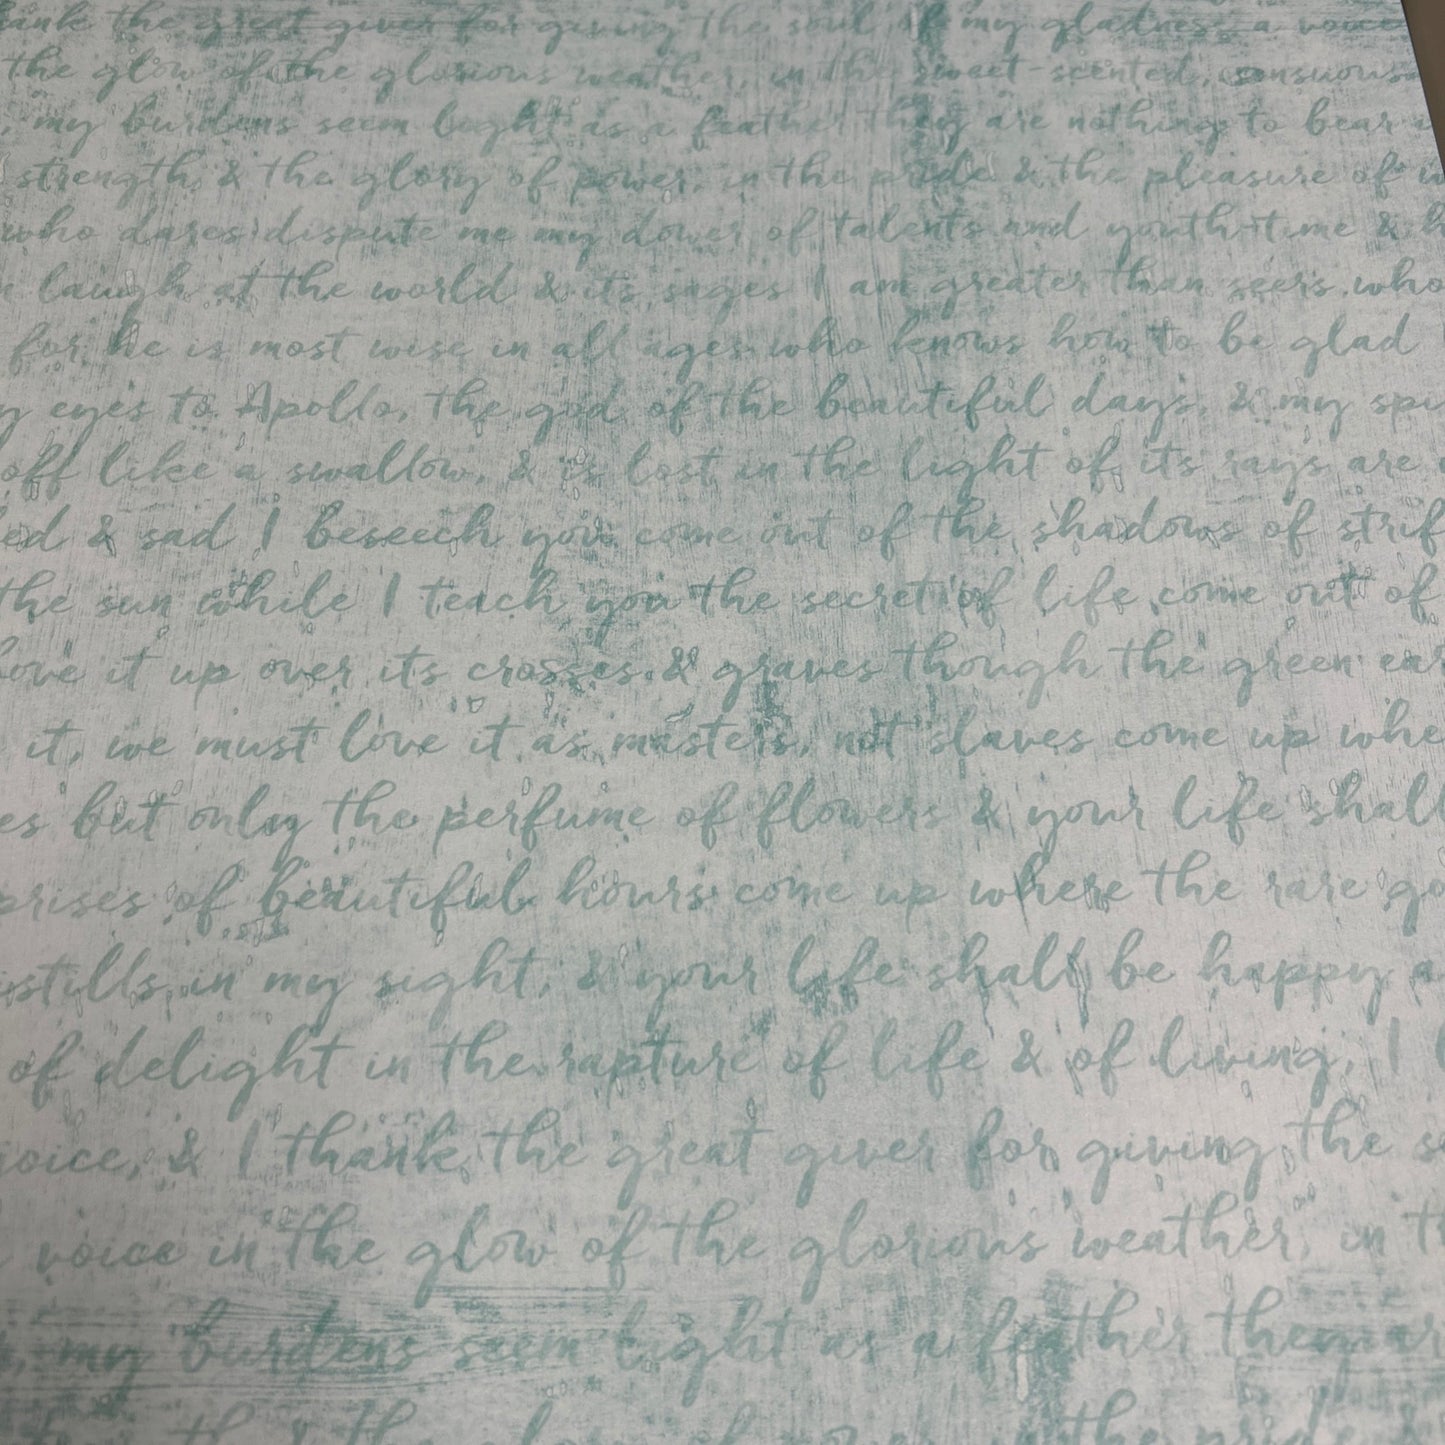 the great giver for giving the soul of my gladness a voice
the glow of the glorious weather, in the sweet-scented, sensuous
, my burdens seem light as a feather they are nothing to bear
strength, & the glory of power, in the pride & the pleasure of
who dares dispute me my dower of talents and youth-time &
laugh at the world & its sages I am greater than seers who
for he is most wise in all ages who knows how to be glad
eyes to Apollo, the god of the beautiful days, & my
off like a swallow, & is lost in the light of its rays are
& sad I beseech you come out of the shadows of
the sun while I teach you the secret of life come out of
it up over its crosses & graves though the green
it, we must love it as masters, not slaves come up
but only the perfume of flowers & your life shall
of beautiful hours come up where the rare
in my sight, & your life shall be happy
of delight in the rapture of life & of living, I
& I thank the great giver for giving the
voice in the glow of the glorious weather, in
, my burdens seem light as a feather they
& the of power, in the pride &